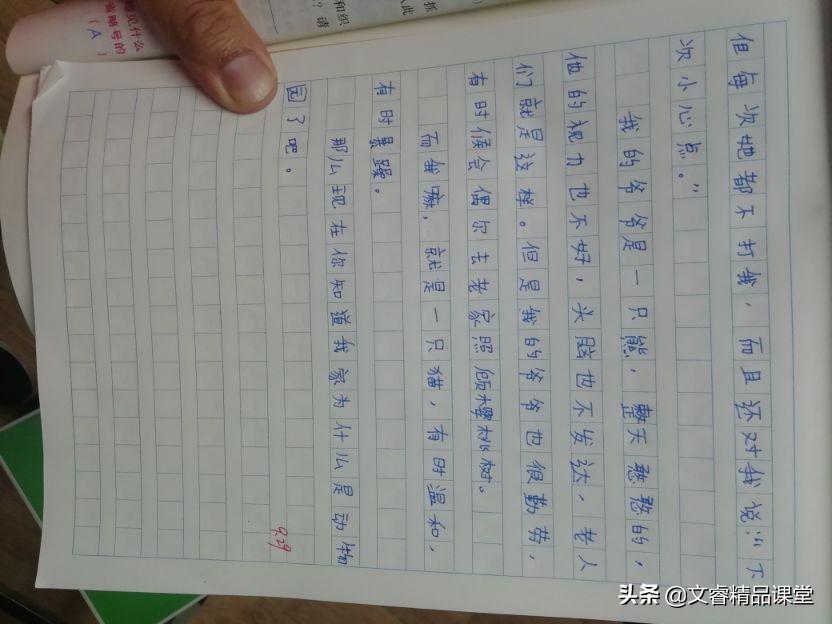 但每次她都不打我，而且还对我说："下
次小心点。"
我的爷爷是一只熊，整天憨憨的，
他的视力也不好，头脑也不发达，老人
们就是这样。但是我的爷爷也很勤劳，
有时候会偶尔去老家照顾樱桃树。
而我嘛，就是一只猫，有时温和，
有时暴躁。
那么现在你知道我家为什么是动物
园了吧。
9.29
见什么
省略号的
（A）
和织
？请
抓
从此
头条 @文睿精品课堂